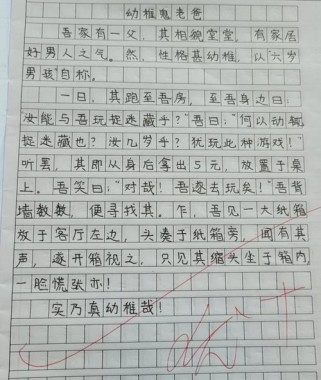 幼稚鬼老爸
吾家有一父，其相貌堂堂，有家居
好男人之气。然，性格甚幼稚，以“六岁
男孩”自称。
一日，其跑至吾房，至吾身边曰：
“汝能与吾玩捉迷藏乎？”吾曰：“何以动辄
捉迷藏也？汝几岁乎？犹玩此种游戏！”
听罢，其即从身后拿出5元，放置于桌
上。吾笑曰：“对哉！吾逐去玩矣！”吾背
墙数数，便寻找其。乍，吾见一大纸箱
放于客厅左边，头凑于纸箱旁，闻有其
声，逐开箱视之，只见其缩头坐于箱内，
一脸慌张亦！
实乃真幼稚哉！